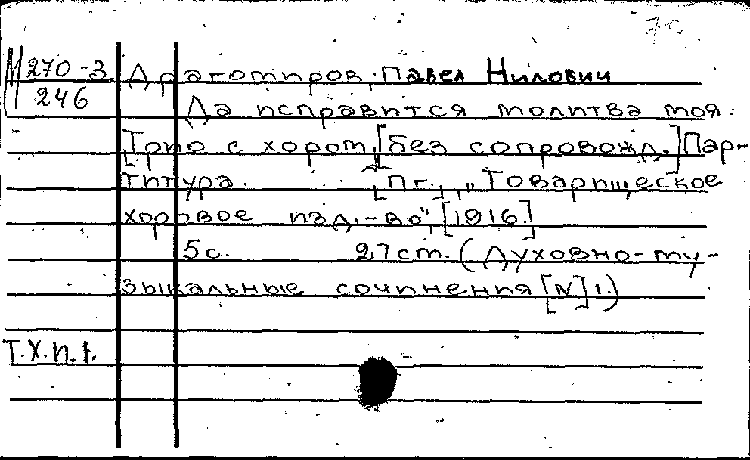 М 270-3 Драгомиров, Павел Нилович
246 Да исправится молитва моя.
[Трио с хором, [без сопровожд.] Пар-
титура. [Пг., „Товарищеское
хоровое изд-во", [1916]
5с. 27 см. (Духовно-му-
зыкальные сочинения [№] 1)
Т.Х.п.1.